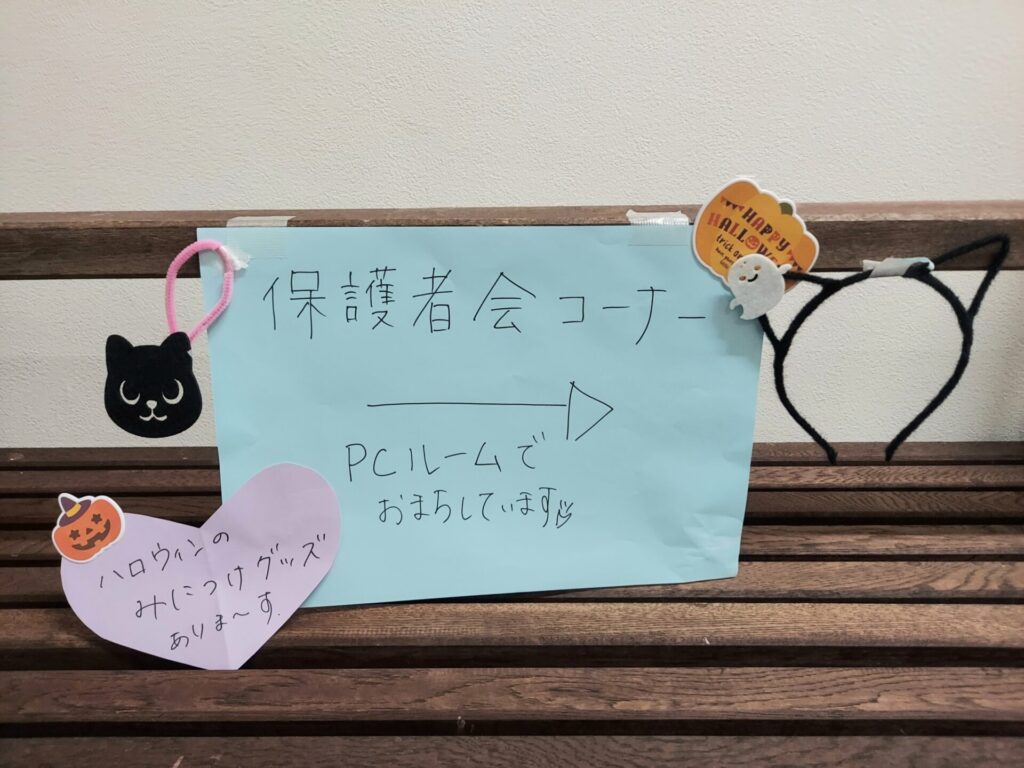 保護者会コーナー
PCルームで
おまちしています
HAPPY
HALLOW
trick or
ハロウィンの
みにつけグッズ
ありま〜す.